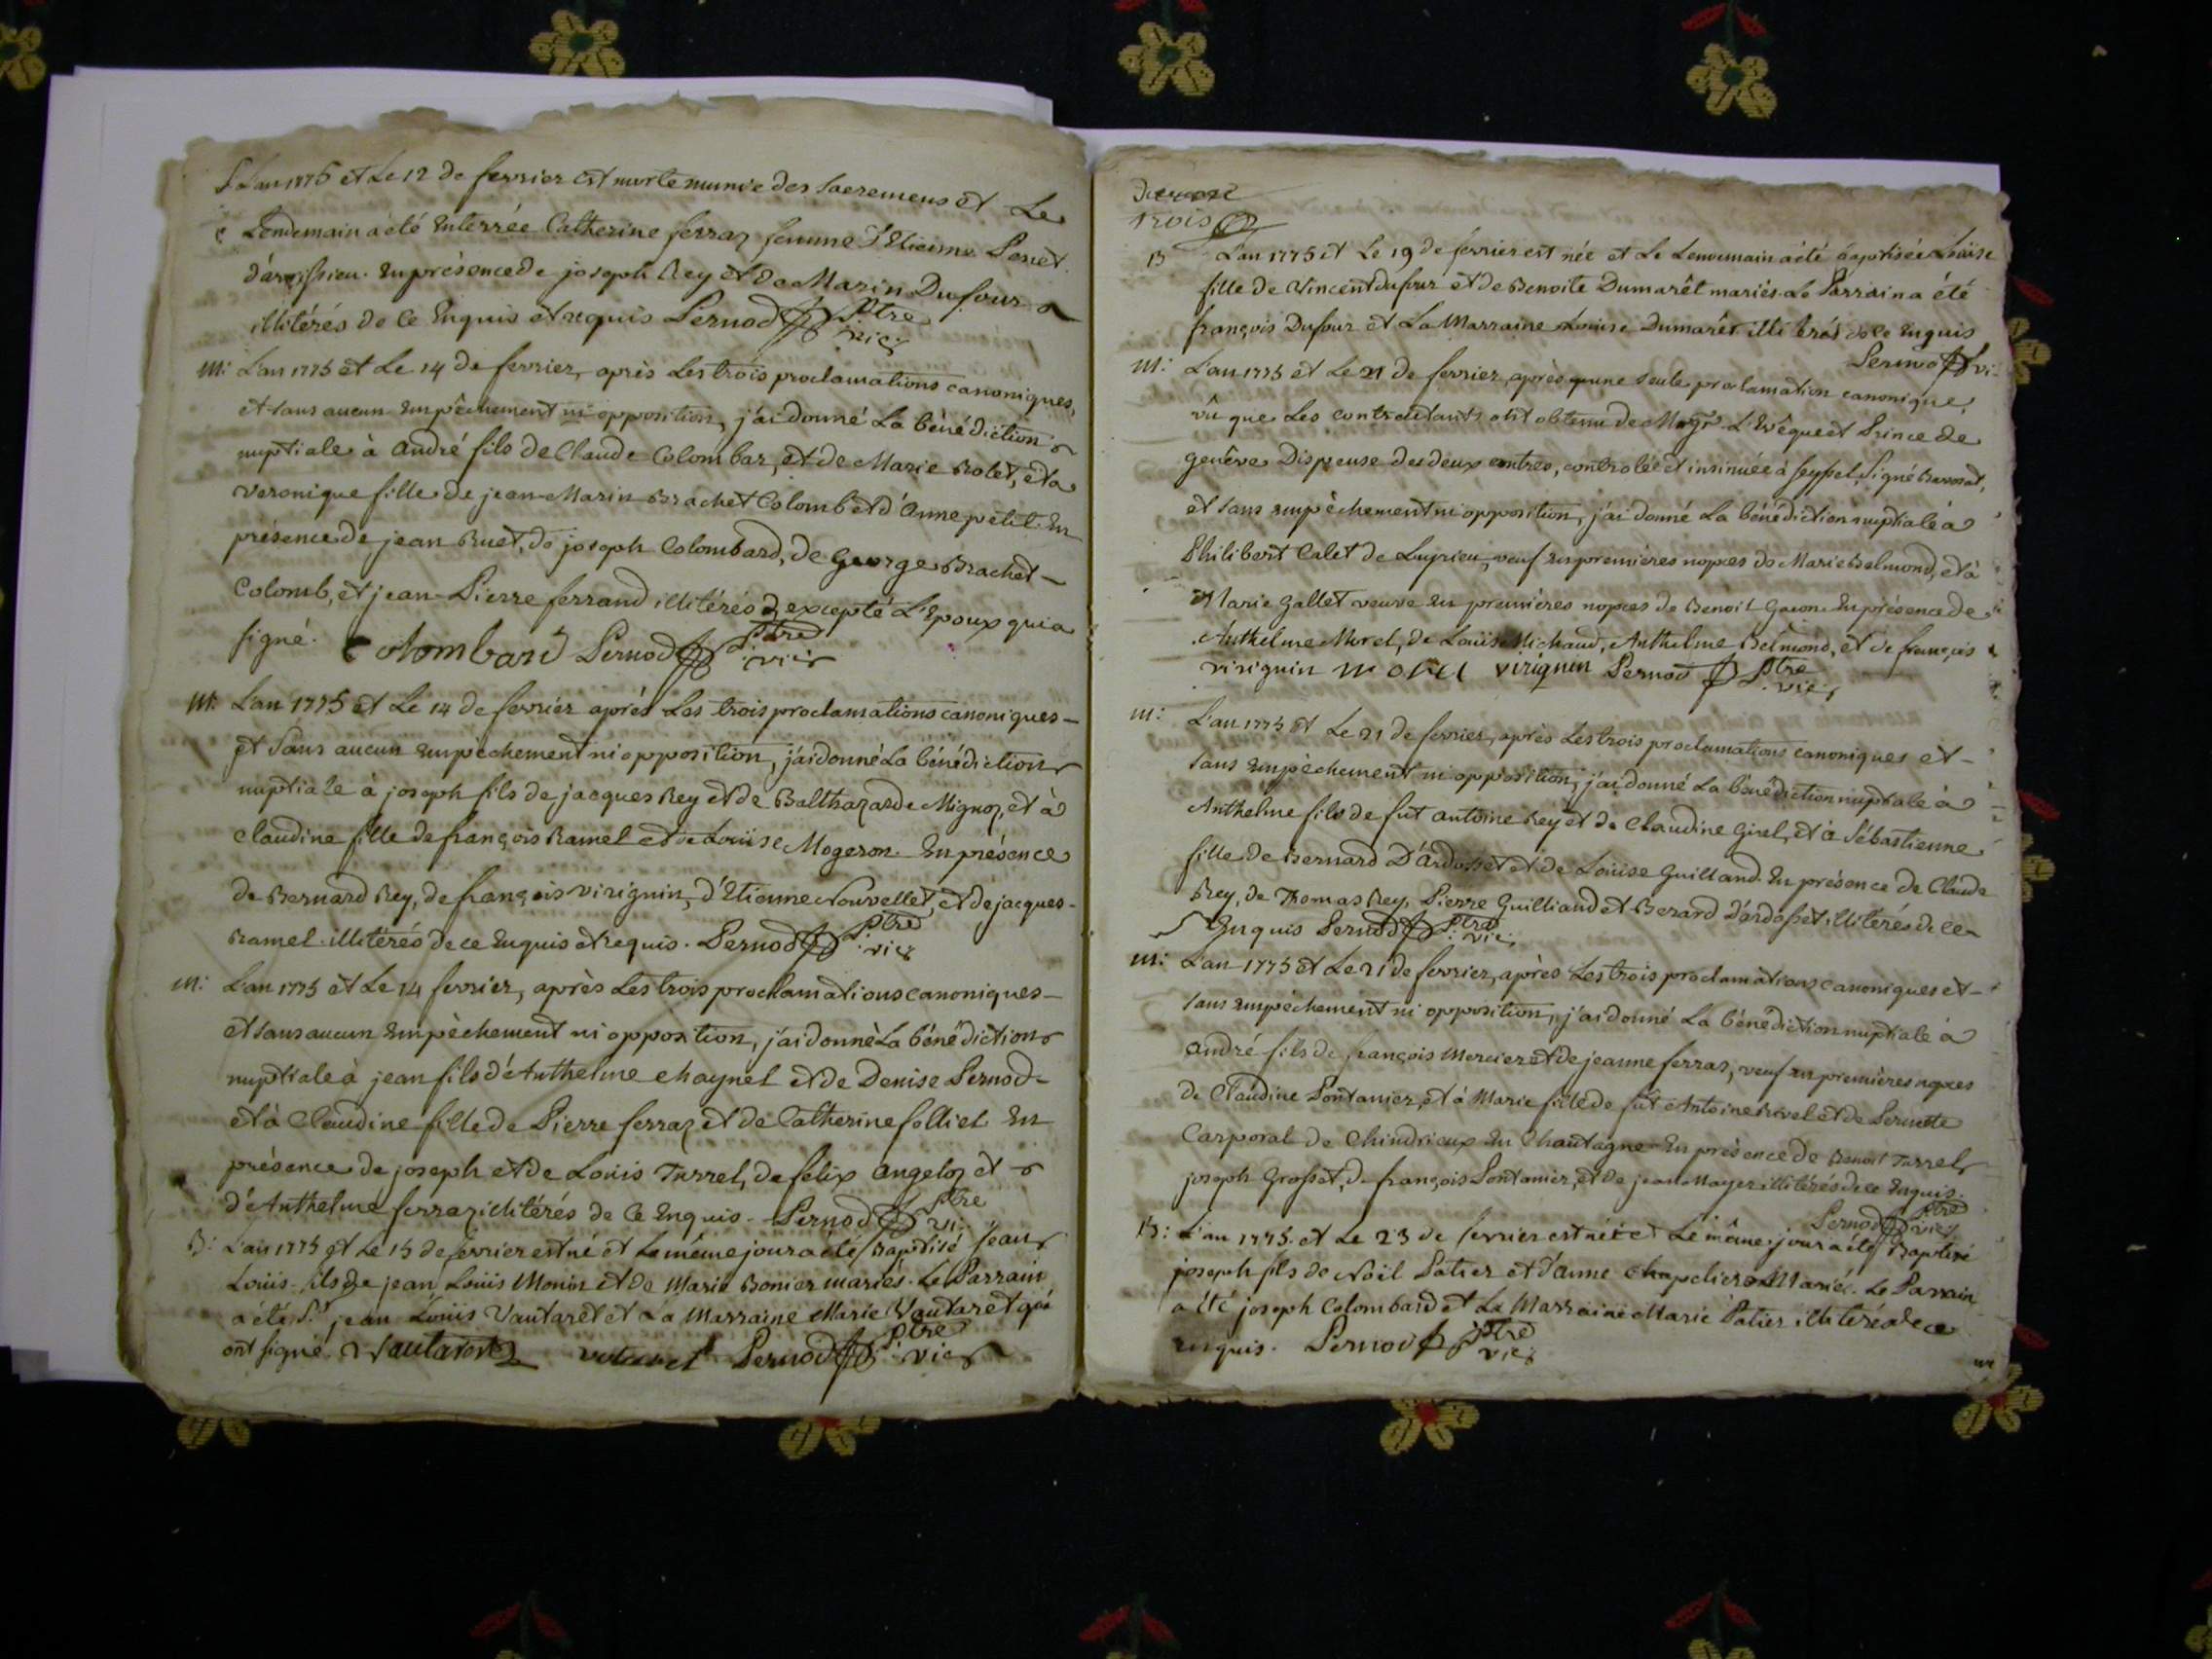 S L'an 1775 et Le 12 de fevrier est morte munie des sacremens et Le
Lendemain a été Enterrée Catherine ferraz femme d'Etienne
En présence de joseph Rey et de Marin Dufour
illitérés de ce Enquis et requis Pernod Ptre vic:
M: L'an 1775 et Le 14 de fevrier, après Les trois proclamations canoniques,
et sans aucun Empêchement ni opposition, j'ai donné La bénédiction
nuptiale à andré fils de Claude Colombar, et de Marie Bolet, et a
veronique fille de jean-Marin Brachet Colomb et d'anne petit. En
présence de jean Ruet, de joseph Colombard, de George Brachet-
Colomb, et jean-Pierre ferrand illitérés excepté L'Epoux qui a
signé. Colombard Pernod Ptre vic:
M: L'an 1775 et Le 14 de fevrier après Les trois proclamations canoniques-
et sans aucun Empêchement ni opposition, j'ai donné La bénédiction
nuptiale à joseph fils de jacques Rey et de Balthazarde Mignoz, et à
Claudine fille de françois Ramel et de Louise Mogeron. En présence
de Bernard Rey, de françois virignin, d'Etienne Nouvellet, et de jacques-
Ramel. illitérés de ce Enquis et Requis. Pernod Ptre vic:
M: L'an 1775 et Le 14 fevrier, après Les trois proclamations canoniques-
et sans aucun Empêchement ni opposition, j'ai donnè La bénédiction
nuptiale à jean fils d'Anthelme chaynel et de Denise Pernod-
et à Claudine fille de Pierre ferraz et de Catherine folliet En
présence de joseph et de Louis Turrel, de felix angeloz et
d'Anthelme ferraz illitérés de ce Enquis. Pernod Ptre vi:
B: L'an 1775 et Le 15 de fevrier est né et Le même jour a été Baptisé jean
Louis fils de jean Louis Monin et de Marie Bonier mariés. Le Parrain
a été Sr. jean Louis Vautaret et La Marraine Marie Vautaret qui
ont signé. Vautaret Pernod Ptre vic:
trois
B L'an 1775 et Le 19 de fevrier est née et Le Lendemain a été baptisée Louise
fille de Vincent dufour et de Benoite Dumarêt mariés. Le Parrain a été
françois Dufour et La Marraine Louise Dumarêt illitérés de ce Enquis
Pernod vi:
M: L'an 1775 et Le 21 de fevrier, après une seule proclamation canonique,
vû que Les contractants ont obtenu de Mgr. L'Evêque et Prince de
genêve Dispense des deux autres, controlée et insinuée à seyssel, Signé
et sans Empêchement ni opposition, j'ai donné La bénédiction nuptiale à
Philibert Calet de Luyrieu, veuf En premières nopces de Marie Belmond, et à
Marie Gallet veuve En premières nopces de Benoit Guion. En présence de
Anthelme Morel, de Louis Michaud, Anthelme Belmond, et de françois
virignin morel virignin Pernod Ptre vic:
M: L'an 1775 et Le 21 de fevrier, après Les trois proclamations canoniques et-
sans Empêchement ni opposition, j'ai donné La bénédiction nuptiale à
Anthelme fils de fut antoine Rey et de Claudine Girel, et à Sébastienne
fille de Bernard D'ardosset et de Louise Guilland. En présence de Claude
Rey, de Thomas Rey, Pierre Guilliand et Berard D'ardosset illitérés de ce
Enquis Pernod Ptre vic:
M: L'an 1775 et Le 21 de fevrier, après Les trois proclamations canoniques et-
sans Empêchement ni opposition, j'ai donné La bénédiction nuptiale à
andré fils de françois Mercier et de jeanne ferraz, veuf En premières nopces
de Claudine Pontanier, et à Marie fille de fut Antoine Rivel et de Pernette
Carporal de Chindrieux En Chautagne. En présence de Benoit Turrel
joseph Grosset, de françois Pontanier, et de jean Mayer illitérés de ce Enquis.
Pernod Ptre vic:
B: L'an 1775. et Le 23 de fevrier est né et Le même jour a été Baptisé
joseph fils de Noël Patier et d'anne chapelier Mariés. Le Parrain
a été joseph Colombard et La Marraine Marie Patier illitérés de ce
enquis. Pernod Ptre vic: